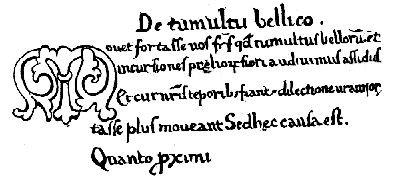 De tumultu bellico.
Movet fortasse vos frs qd tumultus belloru et
incursiones fieri audivimus assiduis
Et cur nris teporib, fiant dilectione vram for
tasse plus moveant Sed hec causa est.
Quanto pximi